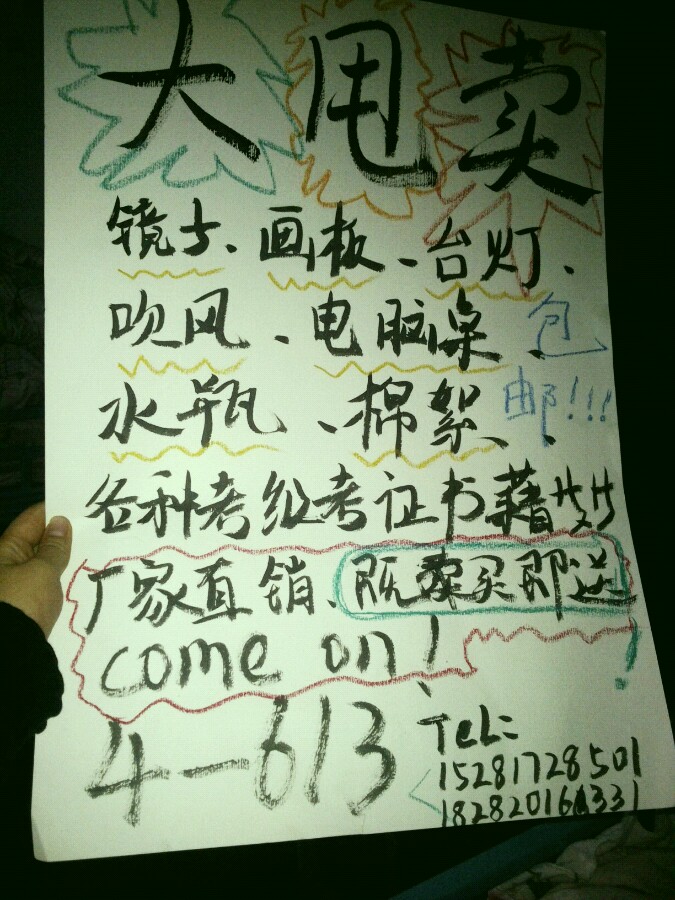 大甩卖
镜子、画板、台灯、
吹风、电脑桌、包
邮!!!
水瓶、棉絮、
各种考级考证书藉
厂家直销、既买即送!
come on!
4-613
TeL:
15281728501
18282016331